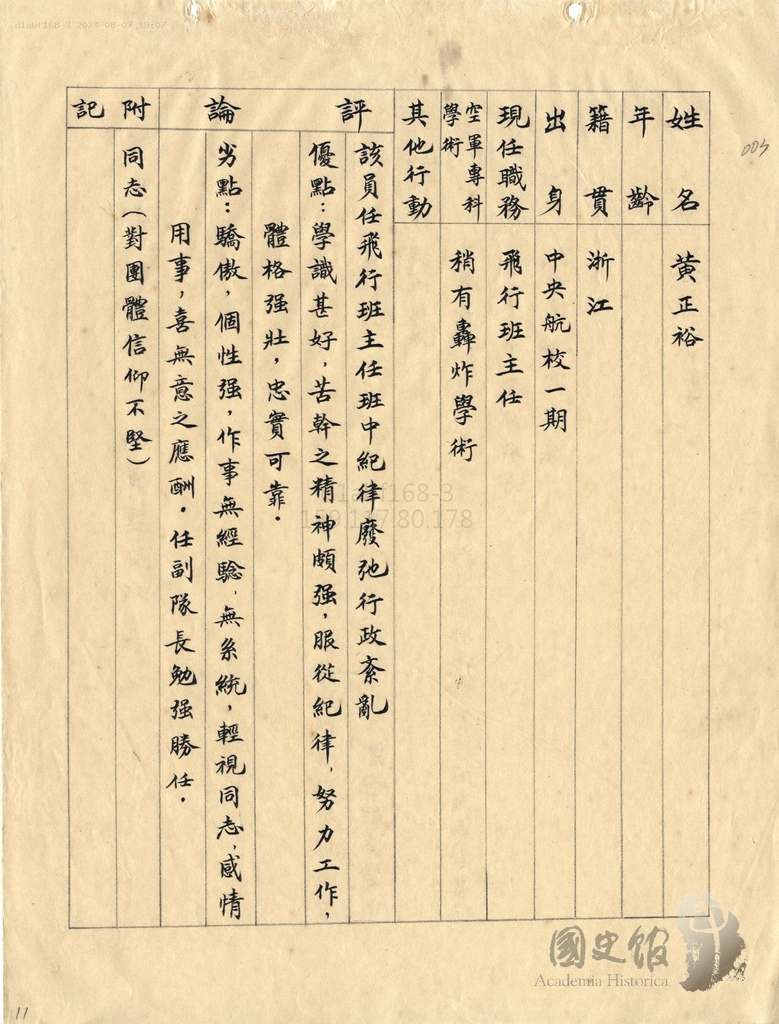 姓名 黄正裕
年齡
籍貫 浙江
出身 中央航校一期
現任職務 飛行班主任
空軍專科學術 稍有轟炸學術
其他行動
評論
該員任飛行班主任班中紀律廢弛行政紊亂
優點：學識甚好，苦幹之精神頗强，服從紀律、努力工作，
體格强壯，忠實可靠．
劣點：驕傲，個性强，作事無經驗、無系統，輕視同志、感情
用事，喜無意之應酬．任副隊長勉强勝任．
附記
同志（對團體信仰不堅）
004
11
國史館
Academia Historica